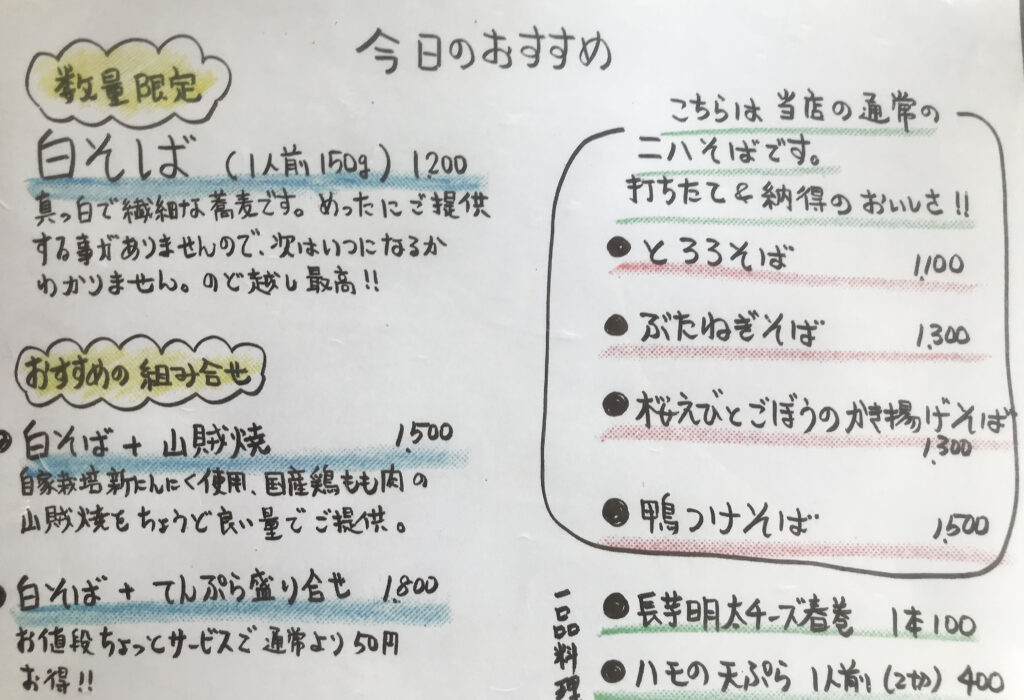 今日のおすすめ
数量限定
白そば (1人前150g) 1,200
真っ白で繊細な蕎麦です。めったにご提供
する事がありませんので、次はいつになるか
わかりません。のど越し最高!!
おすすめの組み合せ
白そば + 山賊焼 1,500
自家栽培新にんにく使用、国産鶏もも肉の
山賊焼をちょうど良い量でご提供。
白そば + てんぷら盛り合せ 1,800
お値段ちょっとサービスで通常より50円
お得!!
こちらは当店の通常の
二八そばです。
打ちたて&納得のおいしさ!!
●とろろそば 1,100
●ぶたねぎそば 1,300
●桜えびとごぼうのかき揚げそば
1,300
●鴨つけそば 1,500
一品料理
●長芋明太チーズ春巻 1本100
●ハモの天ぷら 1人前(2切) 400